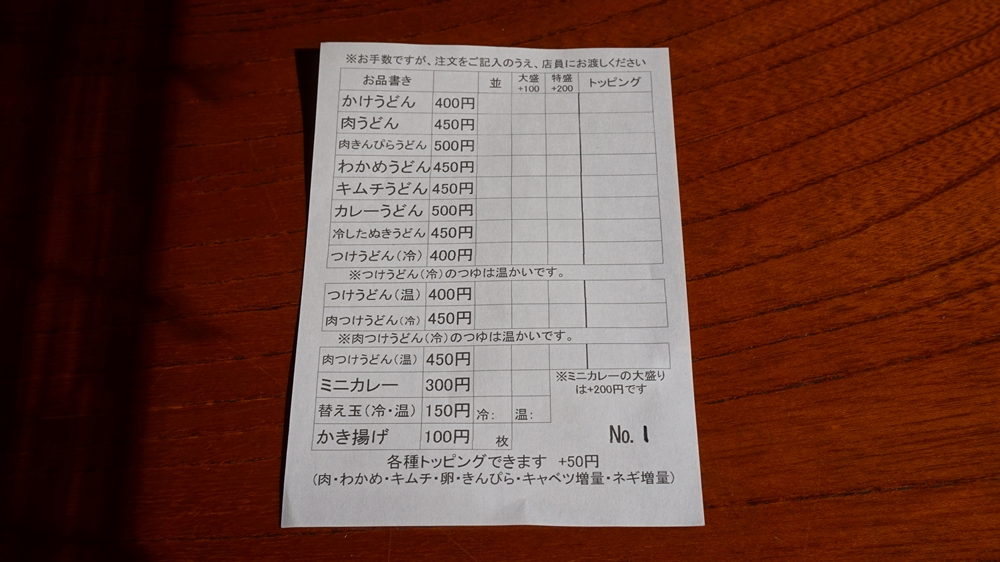 ※お手数ですが、注文をご記入のうえ、店員にお渡しください
お品書き 並 大盛 +100 特盛 +200 トッピング
かけうどん 400円
肉うどん 450円
肉きんぴらうどん 500円
わかめうどん 450円
キムチうどん 450円
カレーうどん 500円
冷したぬきうどん 450円
つけうどん(冷) 400円
※つけうどん(冷)のつゆは温かいです。
つけうどん(温) 400円
肉つけうどん(冷) 450円
※肉つけうどん(冷)のつゆは温かいです。
肉つけうどん(温) 450円
ミニカレー 300円
※ミニカレーの大盛り
は+200円です
替え玉(冷・温) 150円 冷: 温:
かき揚げ 100円 枚
No. 1
各種トッピングできます +50円
(肉・わかめ・キムチ・卵・きんぴら・キャベツ増量・ネギ増量)